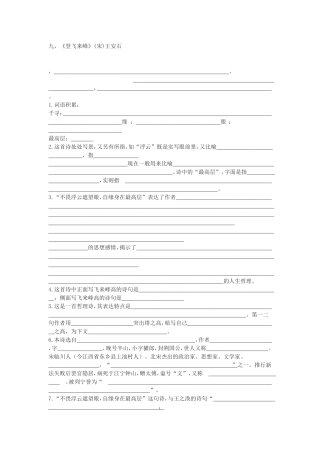 九、《登飞来峰》(宋)王安石
，。
1.词语积累：
千寻： 缘 ：
最高层：
2.这首诗处处写景，又另有所指，如“浮云”既是实写眼前景，又比喻
，指
现在一般用来比喻
，诗中的“最高层”，字面是指
，实指
3.“不畏浮云遮望眼，自缘身在最高层”表达了作者
的思想感情，揭示了
的人生哲理。
4.这首诗中正面写飞来峰高的诗句是
；侧面写飞来峰高的诗句是
5.这是一首哲理诗，其表达特点是 。第一二
句作者用 突出塔之高，给写自己
之高，为下文
6.本诗选自 。作者
，字 ，晚号半山，小字獾郎，封荆国公，世人又称 。
宋临川人（今江西省东乡县上池村人），北宋杰出的政治家、思想家、文学家、
， “ ”之一 。推行新
法失败后罢官隐居，病死于江宁钟山，赠太傅，谥号“文”，又称
，被列宁誉为“
”。
7.“不畏浮云遮望眼，自缘身在最高层”的诗句，与王之涣的诗句“